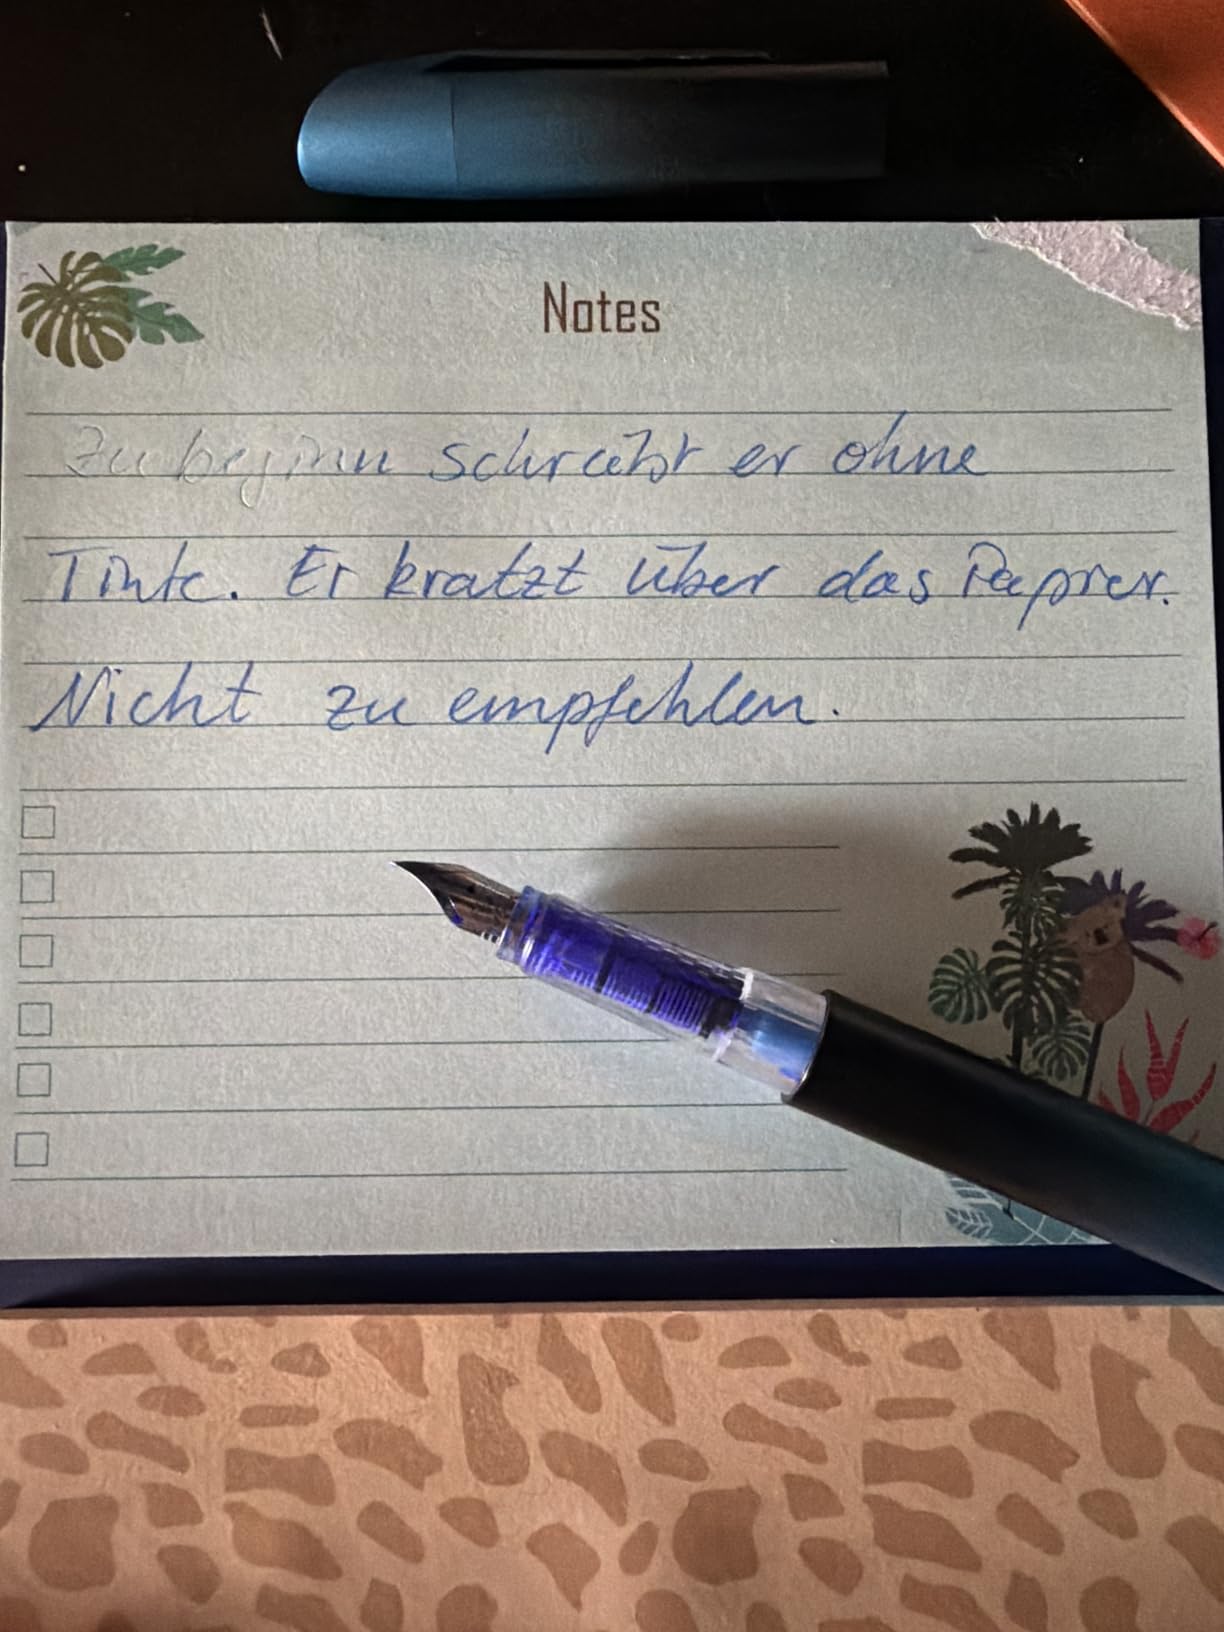 Notes
Zu beginn schreibt er ohne
Tinte. Er kratzt über das Papier.
Nicht zu empfehlen.